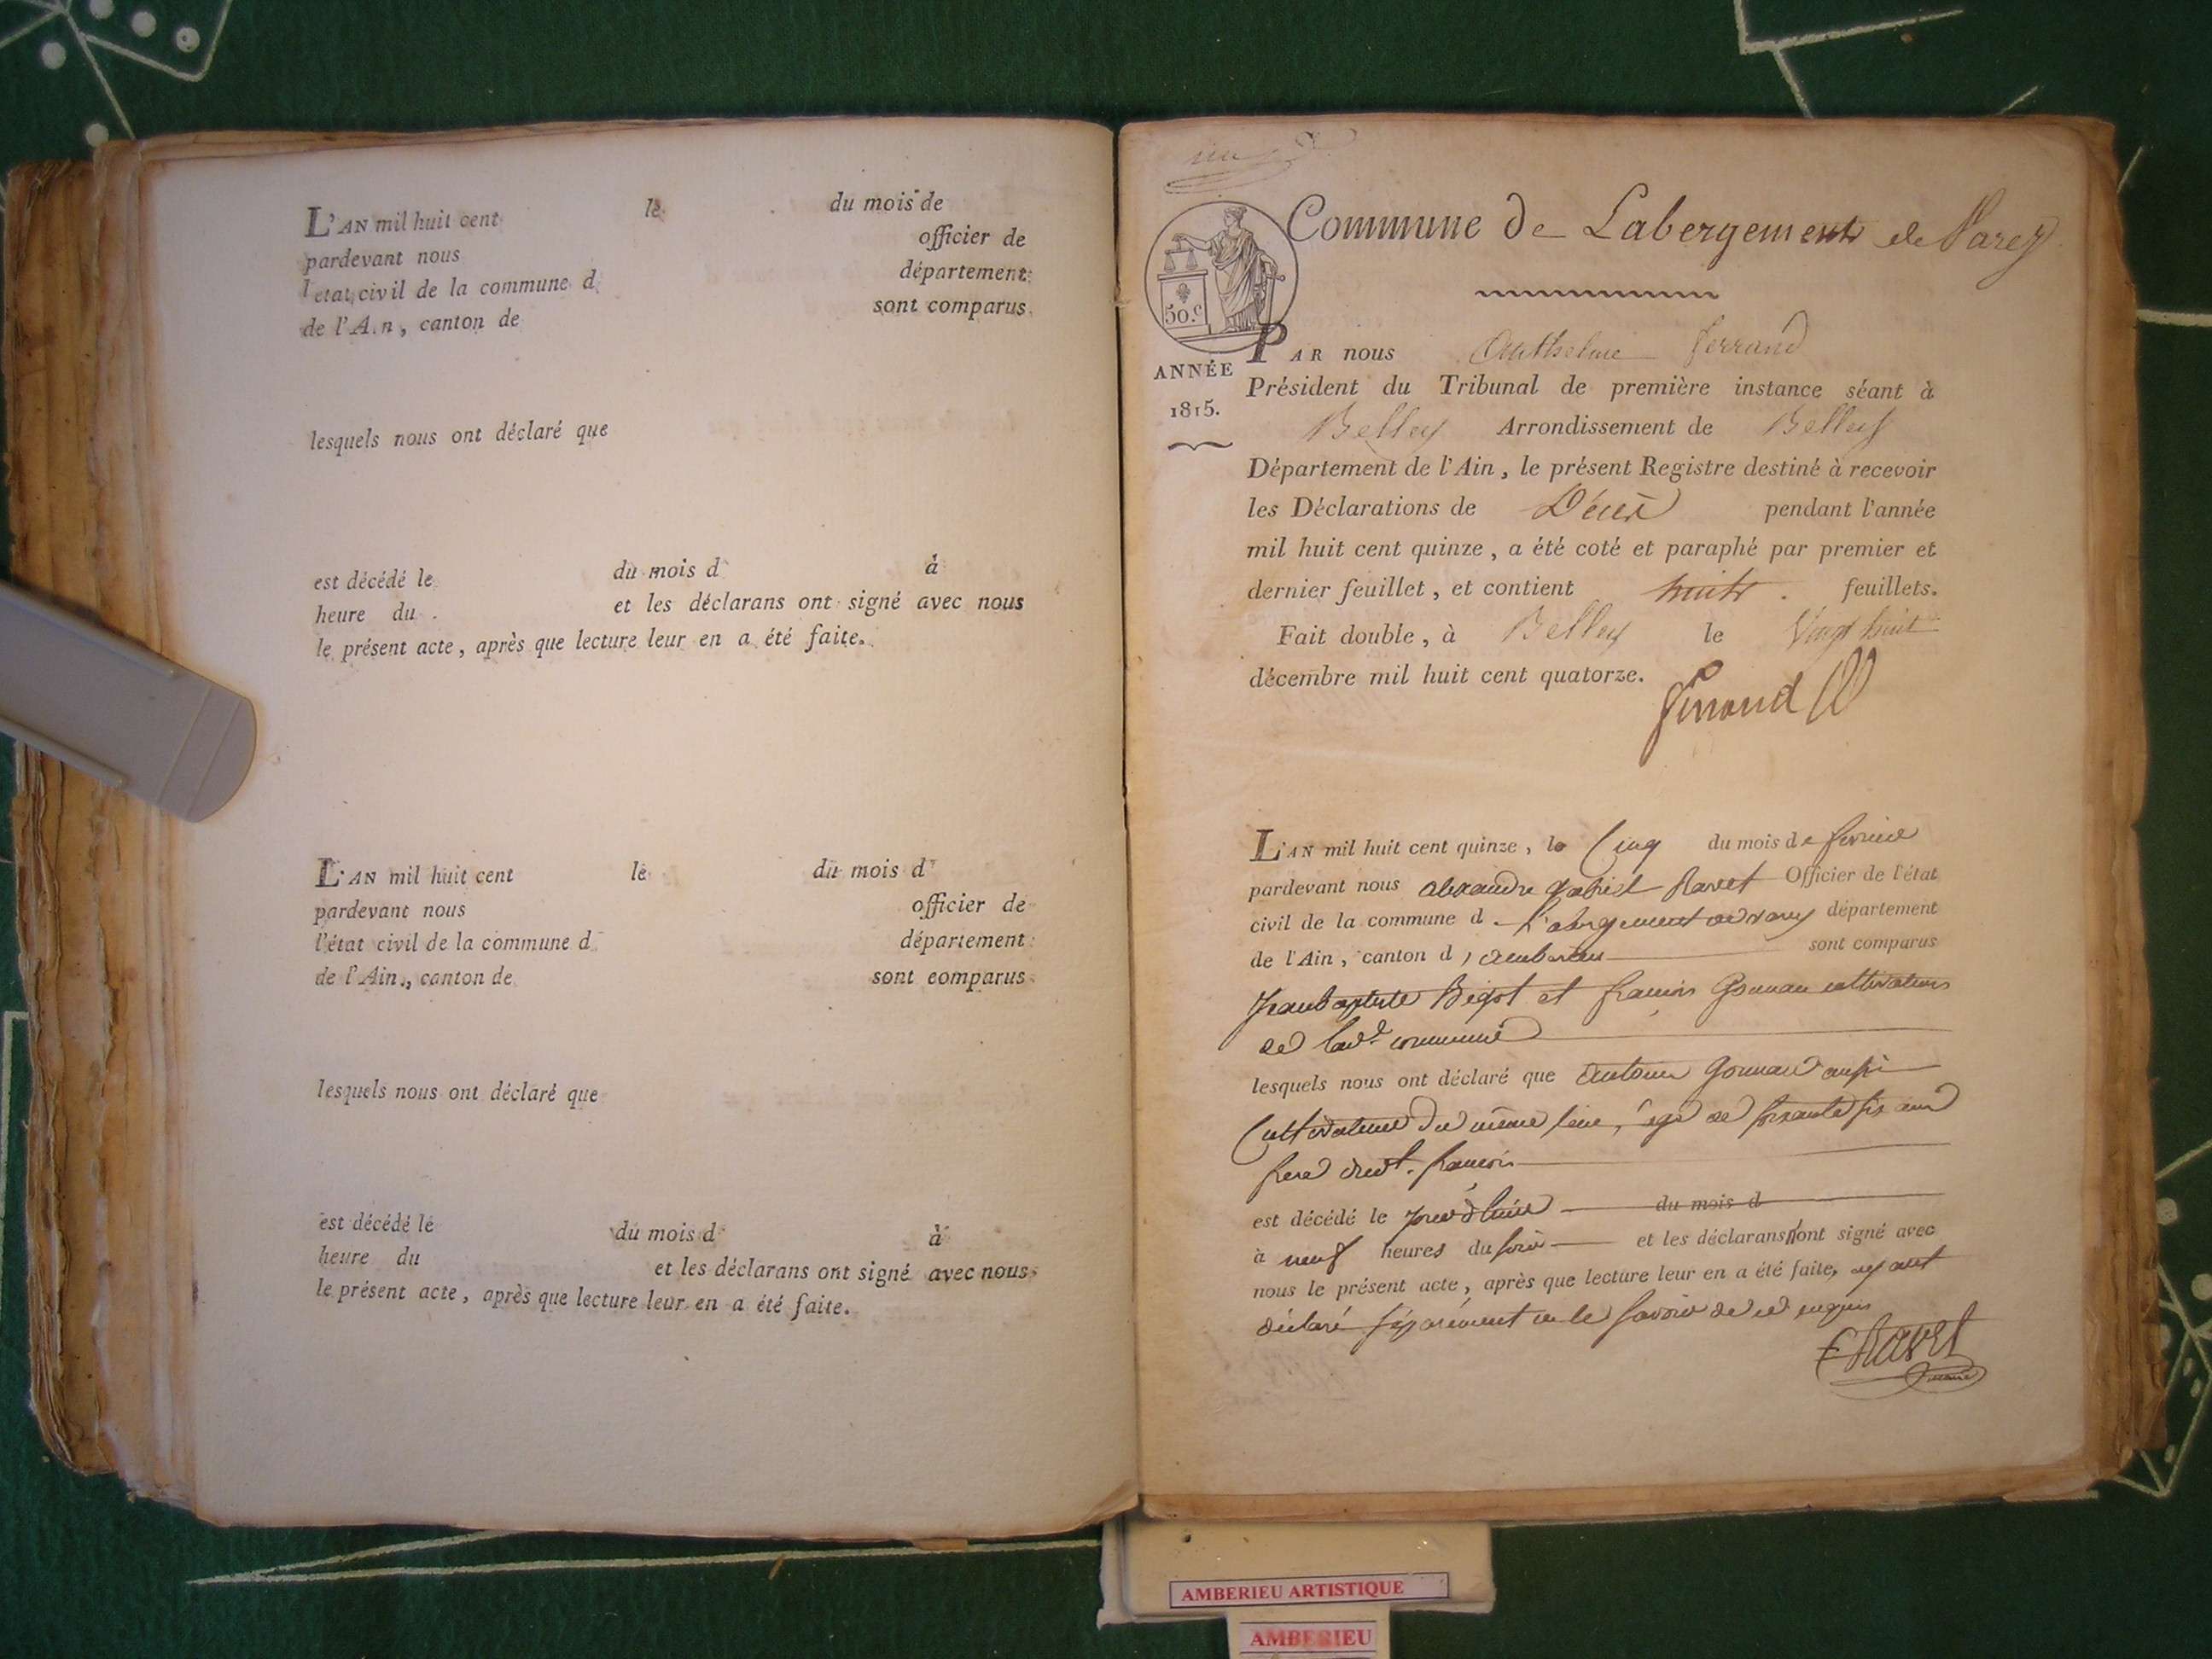 L'AN mil huit cent le du mois de
pardevant nous officier de
l'etat civil de la commune d département
de l'Ain, canton de sont comparus
lesquels nous ont déclaré que
est décédé le du mois d à
heure du et les déclarans ont signé avec nous
le présent acte, après que lecture leur en a été faite.
L'AN mil huit cent le du mois d
pardevant nous officier de
l'état civil de la commune d département
de l'Ain, canton de sont comparus
lesquels nous ont déclaré que
est décédé le du mois d à
heure du et les déclarans ont signé avec nous
le présent acte, après que lecture leur en a été faite.
un
Commune de Labergement de Varey
50.c
ANNÉE
1815.
PAR nous Anthelme ferrand
Président du Tribunal de première instance séant à
Belley Arrondissement de Belley
Département de l'Ain, le présent Registre destiné à recevoir
les Déclarations de Décès pendant l'année
mil huit cent quinze, a été coté et paraphé par premier et
dernier feuillet, et contient huit feuillets.
Fait double, à Belley le Vingt huit
décembre mil huit cent quatorze.
L'AN mil huit cent quinze, le Cinq du mois de fevrier
pardevant nous alexandre gabriel Ravet Officier de l'état
civil de la commune d L'abergement de varey département
de l'Ain, canton d, amberieu sont comparus
Jean baptiste Bigot et françois Gonnan cultivateurs
de lad.e commune
lesquels nous ont déclaré que antoine Gonnand aussi
Cultivateur du même lieu, agé de soixante six ans
frere dud.t françois
est décédé le jour d'hier du mois d
à neuf heures du soir et les déclarans n'ont signé avec
nous le présent acte, après que lecture leur en a été faite, ayant
déclaré séparément ne le savoir de ce enquis
Ravet
maire
AMBERIEU ARTISTIQUE
AMBERIEU